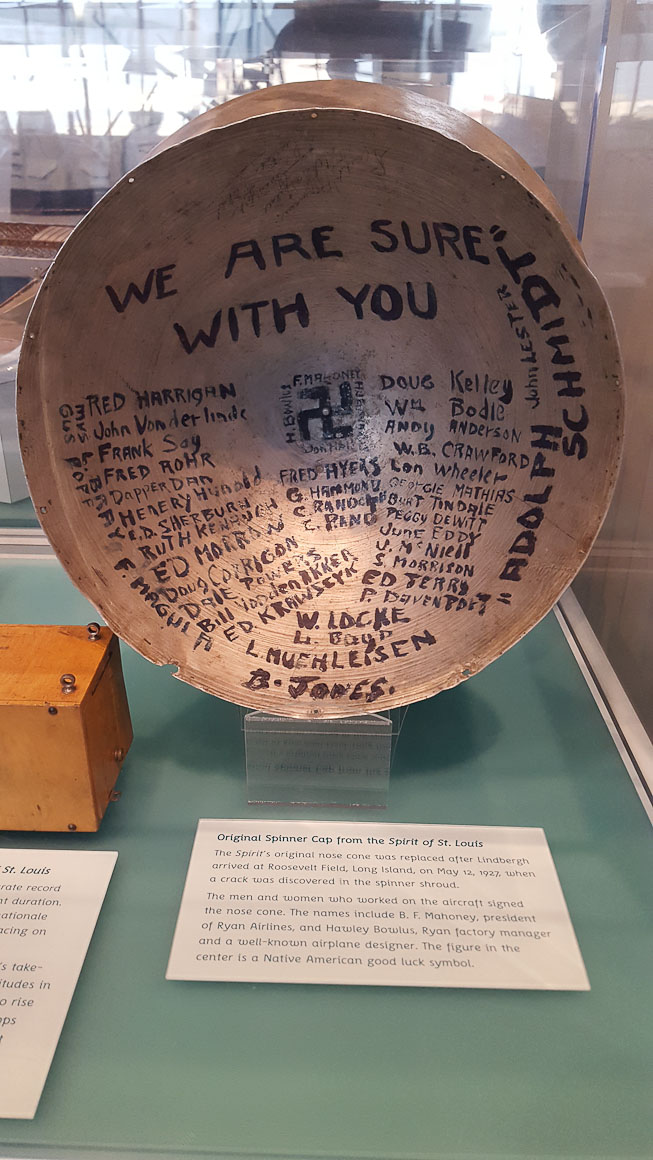 WE ARE SURE"
WITH YOU
"ADOLPH SCHMIDT"
John LESTER
F. MAHONEY
H. Bowlus
RED HARRIGAN
John Vonderlinde
FRANK Say
FRED ROHR
Dapper DAN
HENERY Hunold
E.D. SHEPBURN
RUTH
ED MORROW
Doug CORRIGON
Dale POWERS
Bill
ED KRAWSZYK
GUS POPP
F. MAGULA
FRED AYERS
G. HAMMOND
C. RAND
DOUG Kelley
Wm Bodle
ANDY ANDERSON
W.B. CRAWFORD
Lon Wheeler
GEORGIE MATHIAS
BURT TINDALE
PEGGY DEWITT
JUNE EDDY
J. McNiell
S. MORRISON
ED TERRY
P. DAVENPORT
W. LOCKE
L. Boyd
L. MUEHLEISEN
B. JONES.
Original Spinner Cap from the Spirit of St. Louis
The Spirit's original nose cone was replaced after Lindbergh
arrived at Roosevelt Field, Long Island, on May 12, 1927, when
a crack was discovered in the spinner shroud.
The men and women who worked on the aircraft signed
the nose cone. The names include B. F. Mahoney, president
of Ryan Airlines, and Hawley Bowlus, Ryan factory manager
and a well-known airplane designer. The figure in the
center is a Native American good luck symbol.
St. Louis
record
duration,
on
take-
in
rise